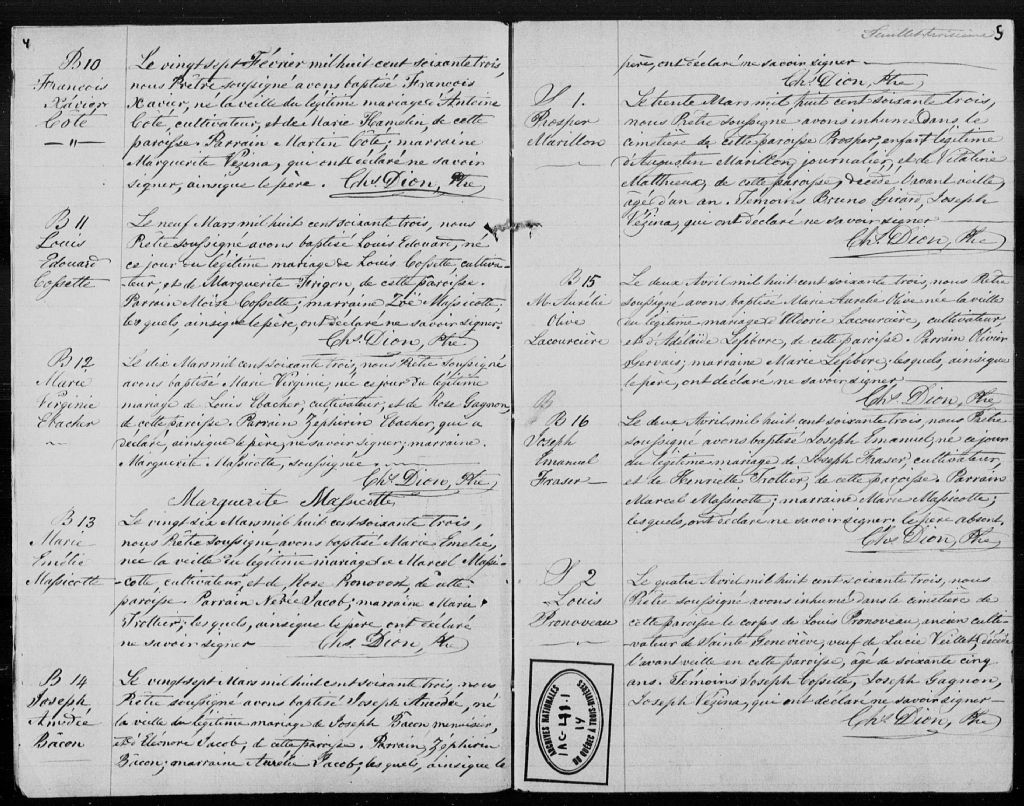 4
B10
François
Xavier
Côté
Le vingt sept Février mil huit cent soixante trois,
nous Prêtre soussigné avons baptisé François
Xavier, né la veille du légitime mariage d'Antoine
Côté, cultivateur, et de Marie Hamelin, de cette
paroisse. Parrain Martin Côté; marraine
Marguerite Vézina, qui ont déclaré ne savoir
signer, ainsi que le père. Chs. Dion, Ptre
B11
Louis
Edouard
Cossette
Le neuf Mars mil huit cent soixante trois, nous
Prêtre soussigné avons baptisé Louis Edouard, né
ce jour du légitime mariage de Louis Cossette, cultiva-
teur, et de Marguerite Frigon, de cette paroisse.
Parrain Moïse Cossette; marraine Zoé Massicotte,
lesquels, ainsi que le père, ont déclaré ne savoir signer.
Chs. Dion, Ptre
B12
Marie
Virginie
Ebacher
Le dix Mars mil cent soixante trois, nous Prêtre soussigné
avons baptisé Marie Virginie, née ce jour du légitime
mariage de Louis Ebacher, cultivateur, et de Rose Gagnon,
de cette paroisse. Parrain Zéphirin Ebacher, qui a
déclaré, ainsi que le père, ne savoir signer; marraine
Marguerite Massicotte, soussignée.
Chs. Dion, Ptre
Marguerite Massicotte
B13
Marie
Emélie
Massicotte
Le vingt six Mars mil huit cent soixante trois,
nous Prêtre soussigné avons baptisé Marie Emélie,
née la veille du légitime mariage de Marcel Massi-
cotte, cultivateur, et de Rose Pronovost, de cette
paroisse. Parrain Jacob; marraine Marie
Trottier; lesquels, ainsi que le père ont déclaré
ne savoir signer Chs. Dion, Ptre
B14
Joseph
Amédée
Bâcon
Le vingt sept Mars mil huit cent soixante trois, nous
Prêtre soussigné avons baptisé Joseph Amédée, né
la veille du légitime mariage de Joseph Bacon, menuisier,
et d'Eléonore Jacob, de cette paroisse. Parrain, Zéphirin
Bâcon; marraine Aurélie Jacob; lesquels, ainsi que le
Feuillet troisième 5
père, ont déclaré ne savoir signer
Chs. Dion, Ptre
S 1.
Prosper
Marillon
Le trente Mars mil huit cent soixante trois,
nous Prêtre soussigné avons inhumé dans le
cimetière de cette paroisse Prosper, enfant légitime
d'Augustin Marillon, journalier, et de Vitaline
Matthieux, de cette paroisse, décédé l'avant veille,
âgé d'un an. Témoins Bruno Girard, Joseph
Vézina, qui ont déclaré ne savoir signer
Chs. Dion, Ptre
B15
M. Aurélie
Olive
Lacourcière
Le deux Avril mil huit cent soixante trois, nous Prêtre
soussigné avons baptisé Marie Aurélie Olive née la veille
du légitime mariage d'Uldoric Lacourcière, cultivateur,
et d'Adélaïde Lefebvre, de cette paroisse. Parrain Olivier
Gervais; marraine Marie Lefebvre; lesquels, ainsi que
le père, ont déclaré ne savoir signer
Chs. Dion, Ptre
B
B16
Joseph
Emanuel
Fraser
Le deux Avril mil huit cent soixante trois, nous Prêtre
soussigné avons baptisé Joseph Emanuel, né ce jour
du légitime mariage de Joseph Fraser, cultivateur,
et de Henriette Trottier, de cette paroisse. Parrain
Marcel Massicotte; marraine Marie Massicotte;
lesquels, ont déclaré ne savoir signer. le père absent.
Chs. Dion, Ptre
S 2
Louis
Pronoveau
Le quatre Avril mil huit cent soixante trois, nous
Prêtre soussigné avons inhumé dans le cimetière de
cette paroisse le corps de Louis Pronoveau, ancien culti-
vateur de Sainte Geneviève, veuf de Lucie Veillet, décédé
l'avant veille en cette paroisse, âgé de soixante cinq
ans. Témoins Joseph Cossette, Joseph Gagnon,
Joseph Vézina, qui ont déclaré ne savoir signer
Chs. Dion, Ptre
ARCHIVES NATIONALES
DU QUÉBEC À TROIS-RIVIÈRES